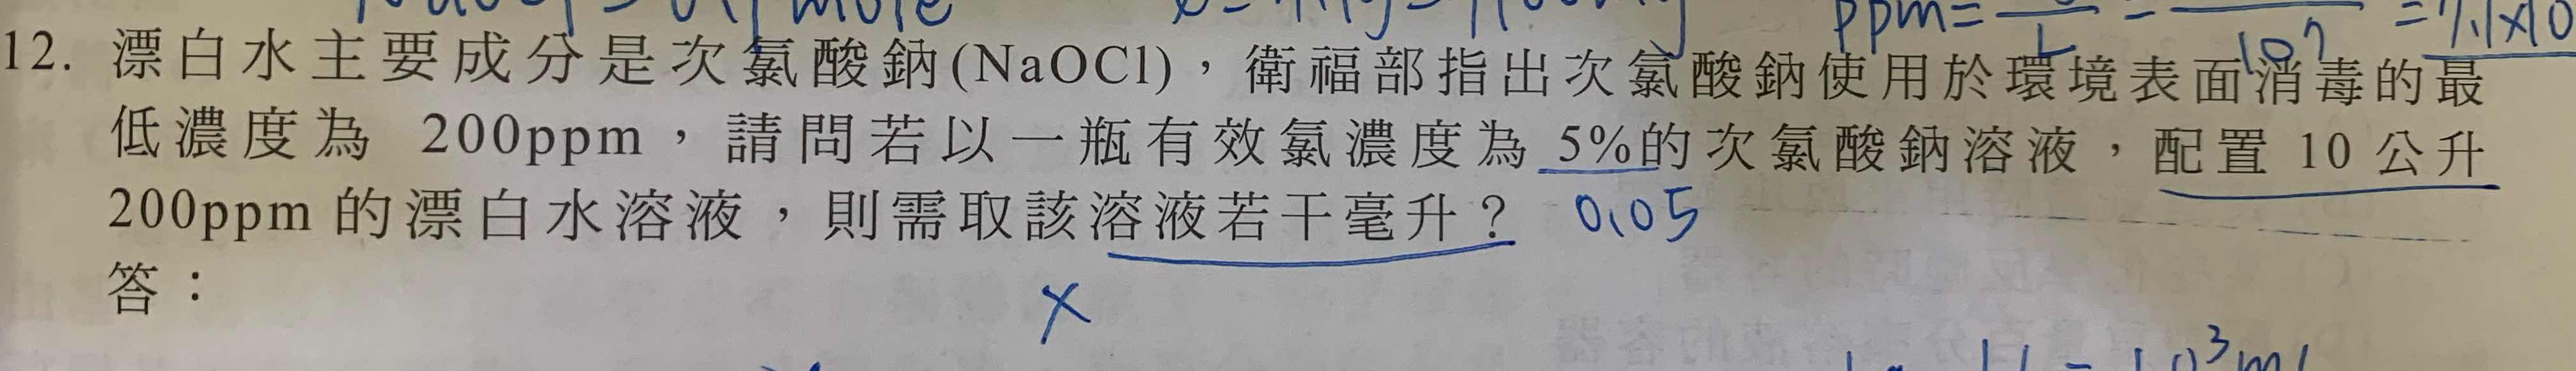 ppm=
12. 漂白水主要成分是次氯酸鈉(NaOCl)，衛福部指出次氯酸鈉使用於環境表面消毒的最
低濃度為 200ppm，請問若以一瓶有效氯濃度為 5%的次氯酸鈉溶液，配置 10 公升
200ppm 的漂白水溶液，則需取該溶液若干毫升？ 0.05
答：
x